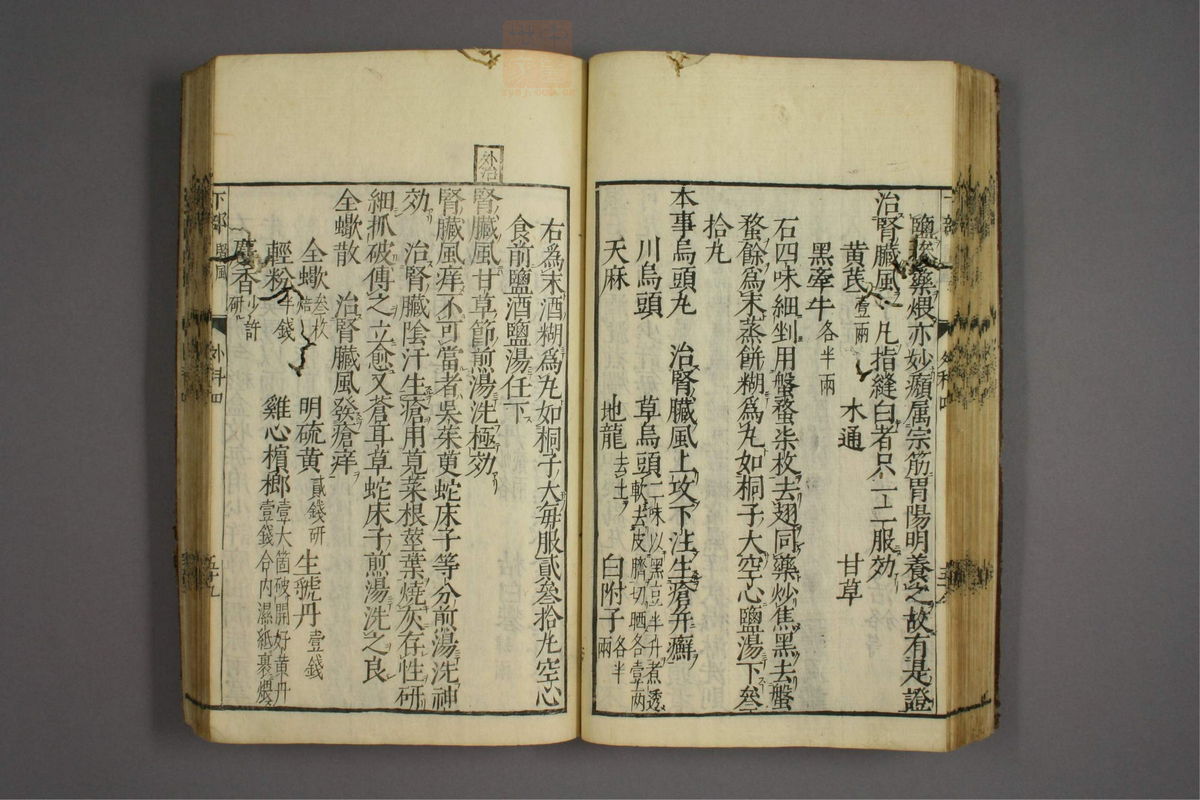 鹽煨藥煨亦妙癩属宗筋胃陽明養之故有是證
治腎臟風 凡指縫白者只一二服効
黄芪壹兩 木通 甘草
黑牽牛各半兩
右四味細剉用盤蝥柒枚去翅同藥炒焦黑去盤
蝥餘爲末蒸餅糊爲丸如桐子大空心鹽湯下叄
拾丸
本事烏頭丸 治腎臟風上攻下注生瘡并癬
川烏頭 草烏頭二味以黑豆半升煮透軟去皮臍切晒各壹兩
天麻 地龍去土 白附子各半兩
右爲末酒糊爲丸如桐子大每服貳叄拾丸空心
食前鹽酒鹽湯任下
外治
腎臟風甘草節煎湯洗極効
腎臟風痒不可當者吳茱萸蛇床子等分煎湯洗神
効 治腎臟陰汗生瘡用莧菜根莖葉燒灰存性研
細抓破傅之立愈又蒼耳草蛇床子煎湯洗之良
全蠍散 治腎臟風發瘡痒
全蠍叄枚焙 明硫黄貳錢研 生虢丹壹錢
輕粉半錢 雞心檳榔壹大箇破開好黄丹壹錢合内濕紙裹煨
麝香少許研
下部 腎風 外科四